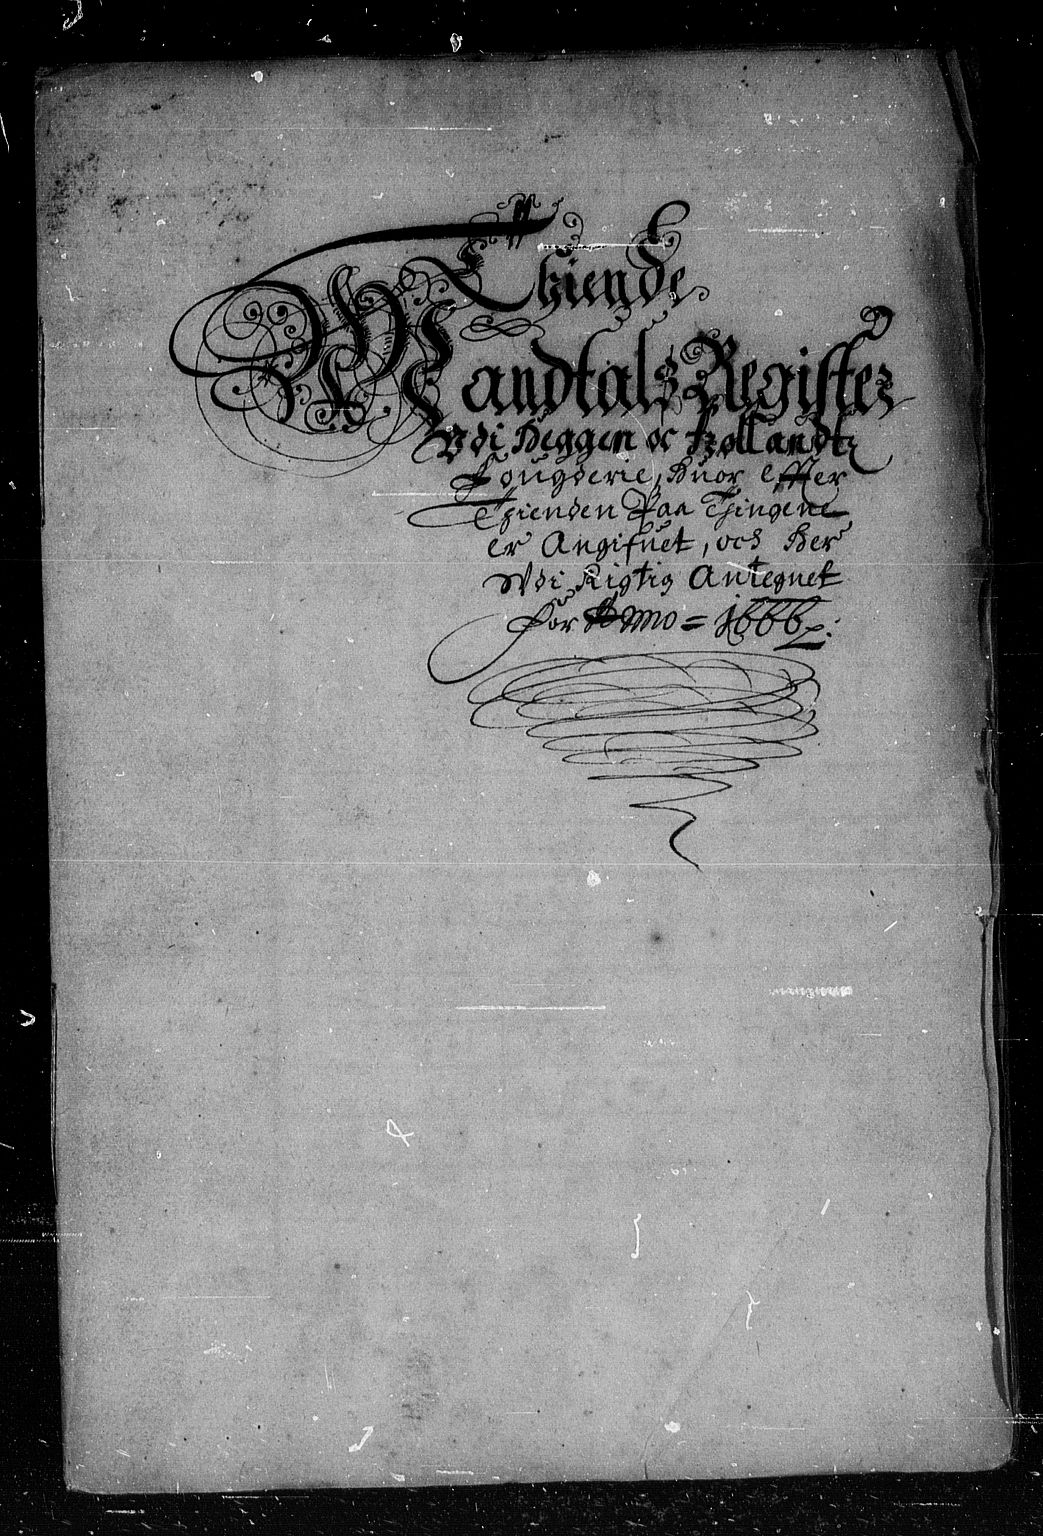 Thiende
Mandtals Register
Vdi Heggen oc Frøllandtz
Fougderie, Huor effter
Thienden Paa Thingene
er Angifuet, och Her
Vdi Rigtig Antegnet
För Anno = 1666